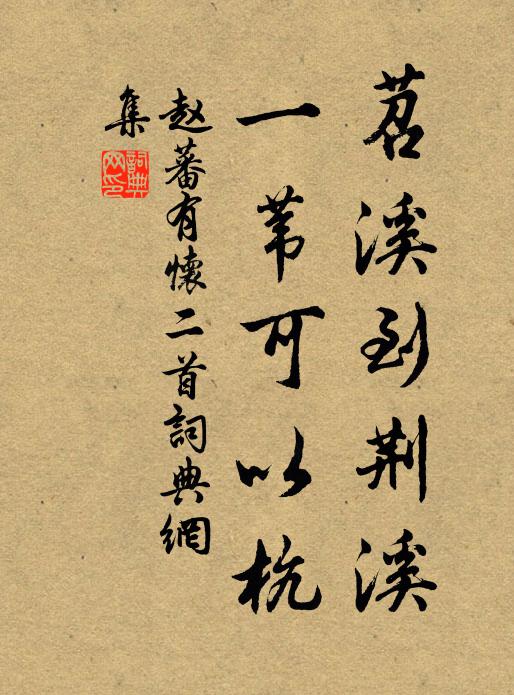 苕溪到荆溪
一苇可以杭
赵蕃有懷二首詞典網
集
詞典网印